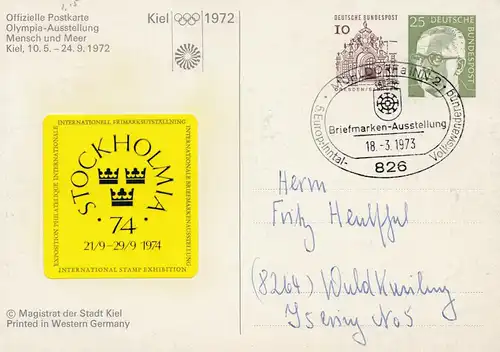 1,15
Offizielle Postkarte
Olympia-Ausstellung
Mensch und Meer
Kiel, 10. 5. - 24. 9. 1972
Kiel 1972
10 DEUTSCHE BUNDESPOST
25 DEUTSCHE BUNDESPOST
MÜHLDORF a INN 2
Briefmarken-Ausstellung
18.-3.1973
826
Volkswanderung
INTERNATIONELL FRIMÄRKSUTSTÄLLNING
EXPOSITION PHILATELIQUE INTERNATIONALE
INTERNATIONALE BRIEFMARKENAUSSTELLUNG
STOCKHOLMIA
74
21/9-29/9 1974
INTERNATIONAL STAMP EXHIBITION
Herrn
Fritz
(8264)
No 5
© Magistrat der Stadt Kiel
Printed in Western Germany